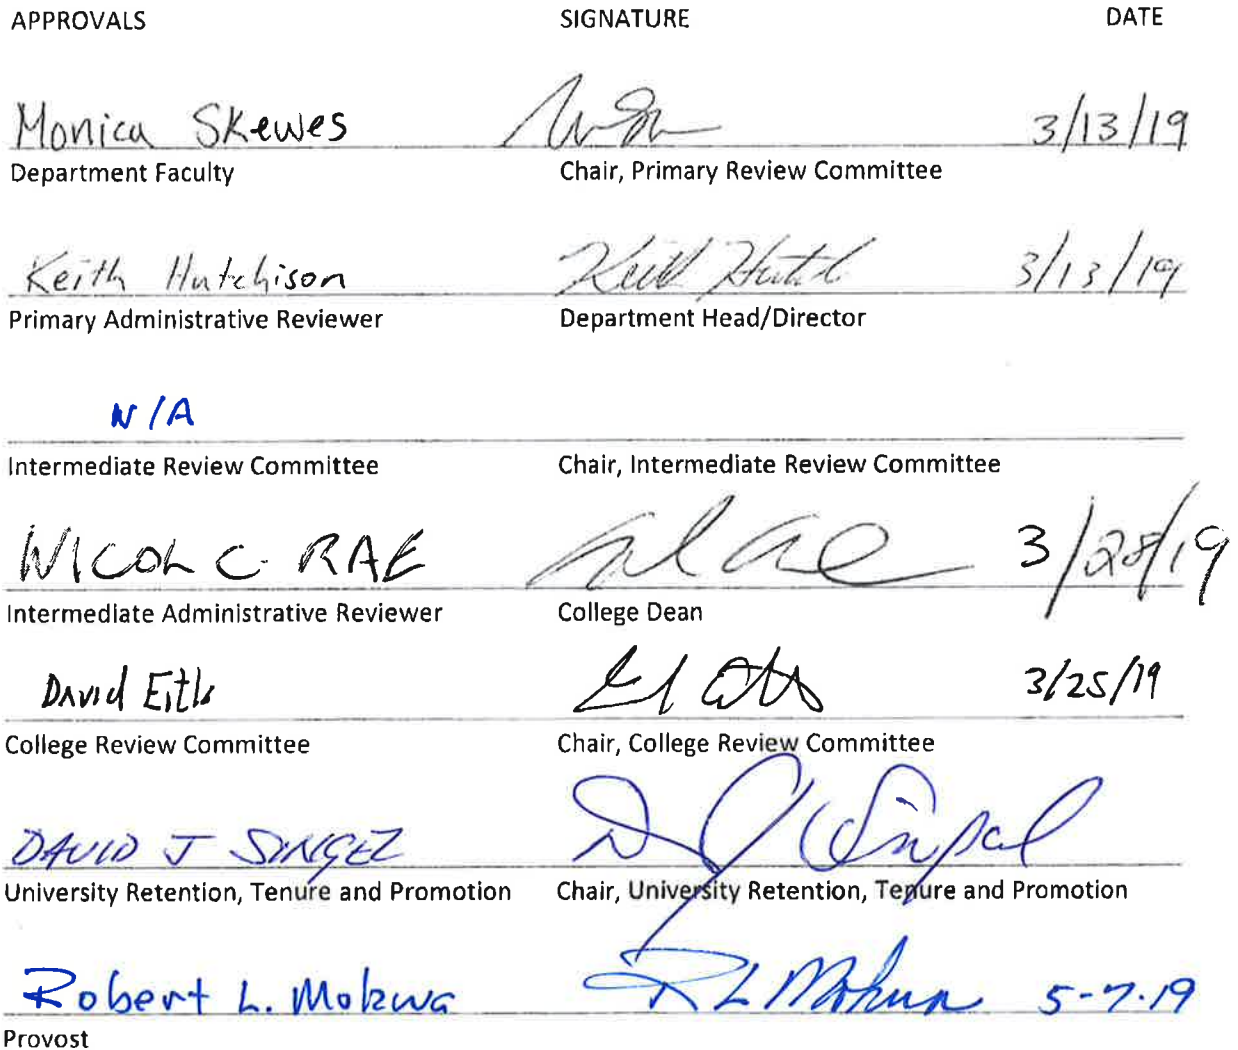 APPROVALS SIGNATURE DATE
Monica Skewes 3/13/19
Department Faculty Chair, Primary Review Committee
Keith Hutchison Keith Hutch 3/13/19
Primary Administrative Reviewer Department Head/Director
N/A
Intermediate Review Committee Chair, Intermediate Review Committee
NICOL C. RAE 3/28/19
Intermediate Administrative Reviewer College Dean
David Eitle 3/25/19
College Review Committee Chair, College Review Committee
DAVID J SINGEL D J Singel
University Retention, Tenure and Promotion Chair, University Retention, Tenure and Promotion
Robert L. Mokwa R L Mokwa 5-7-19
Provost